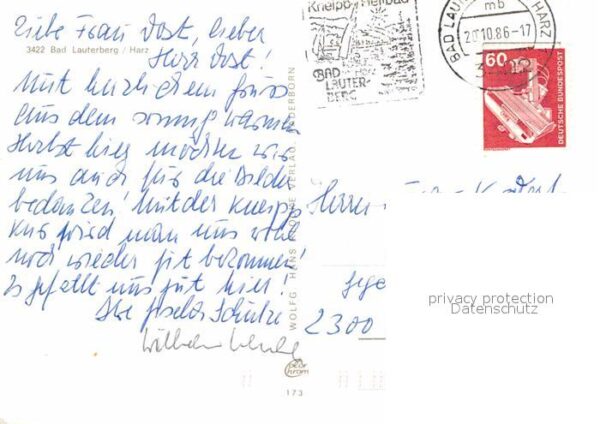 Liebe Frau Dost, lieber
Herr Dost!
3422 Bad Lauterberg / Harz
Mit herzlichem Gruss
aus dem sonnig warmen
Herbst hier möchten wir
uns auch für die Bilder
bedanken! Mit der Kneipp
Kur wird man uns wohl
noch wieder fit bekommen!
Es gefällt uns gut hier!
Ihre Gisela Schulze
Wilhelm
WOLFG. HANS VERLAG PADERBORN
173
Kneipp-Heilbad
BAD
LAUTER-
BERG
BAD LAUTERBERG HARZ
mb
20.10.86-17
60
DEUTSCHE BUNDESPOST
Herrn
2300
privacy protection
Datenschutz